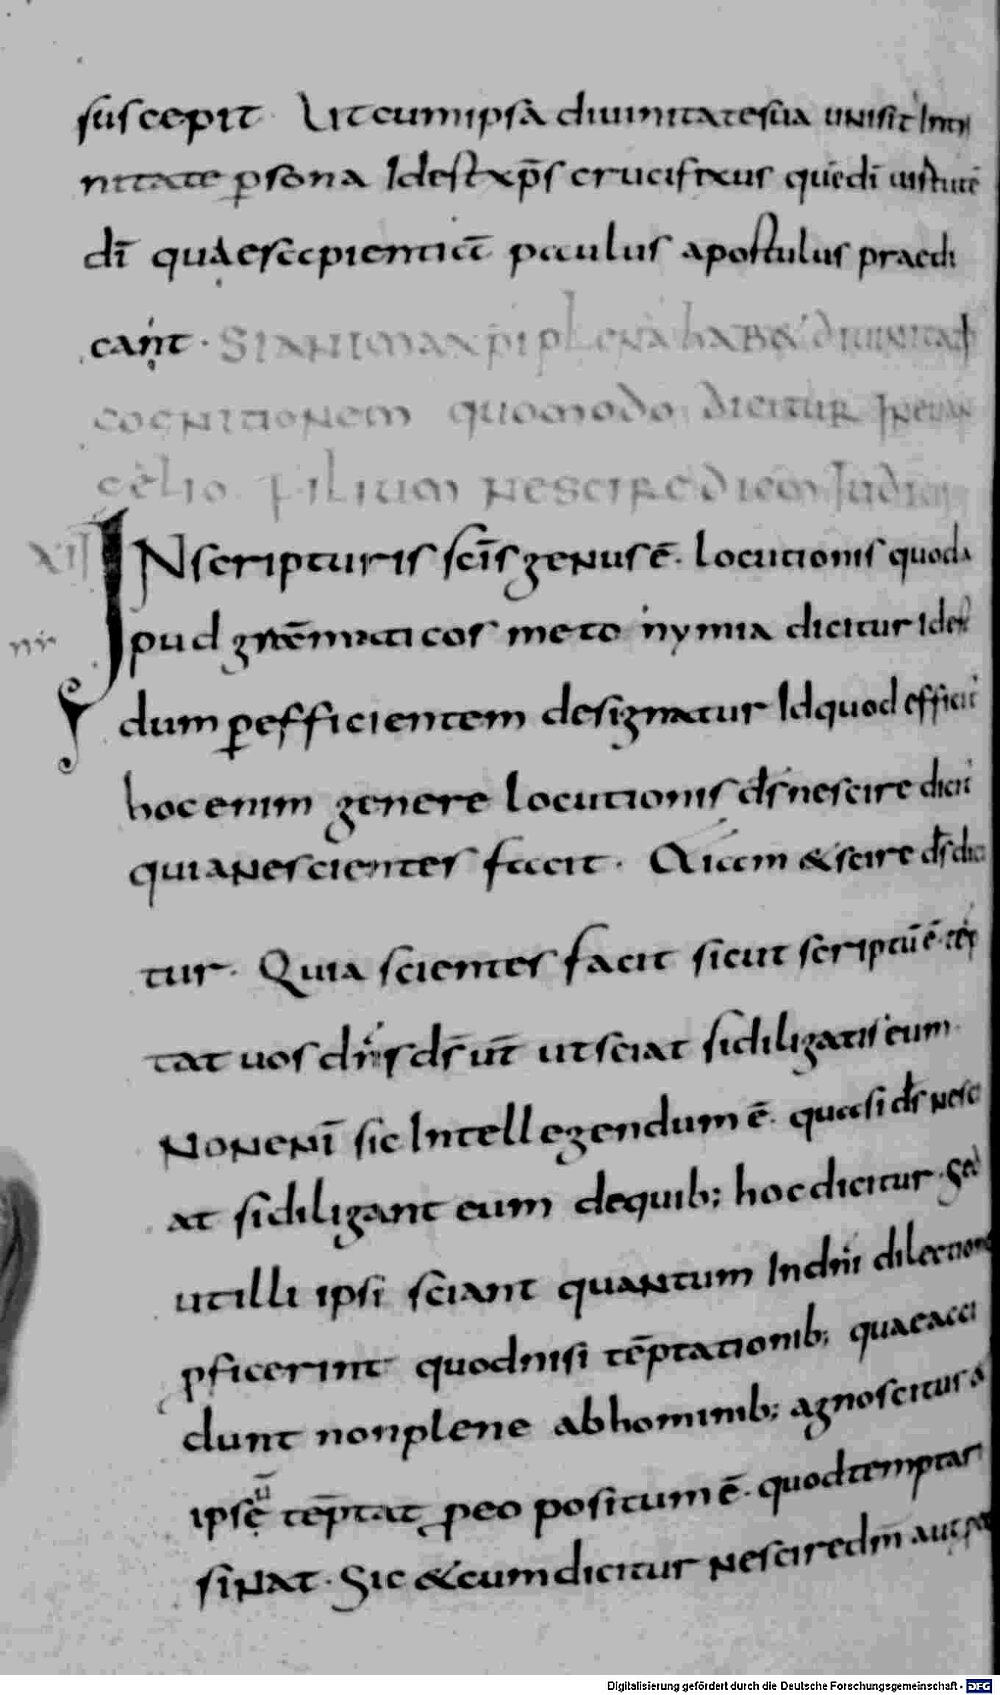 suscepit. Ut cum ipsa diuinitate sua unisit In tri
nitate p̱sona Idest xp̄s crucifixus quē dī uirtutē
dī quaesapientiā paulus apostulus praedi
cant · SI ANIMA xp̄i pLENA haB& diuinitatis
coGNITIONEM quomodo dicitur IN EUAN
Gelio FILIUM NESCIRE diem Iudicii
XII INscripturis scīs genus ē · locutionis quod a
pud gramaticos metonymia dicitur Idest
dum p̱efficientem designatur Id quod efficit'
hoc enim genere locutionis d̄s nescire dicit'
quia nescientes facit · &iam & scire d̄s dici
tur · Quia scientes facit sicut scriptū ē · tēp
tat uos dn̄s d̄s ur̄ ut sciat si diligatis eum
Non enī sic Intellegendum ē · quasi d̄s nesci
at si diligant eum de quib; hoc dicitur · Sed
ut illi ipsi sciant quantum In dn̄i dilectione
p̱ficerint quod nisi tēptationib; quae acci
dunt non plene ab hominib; agnoscitur a
ipsē tēptat p̱ eo positum ē · quod temptar
sinat · Sic & cum dicitur nescire dn̄m aut